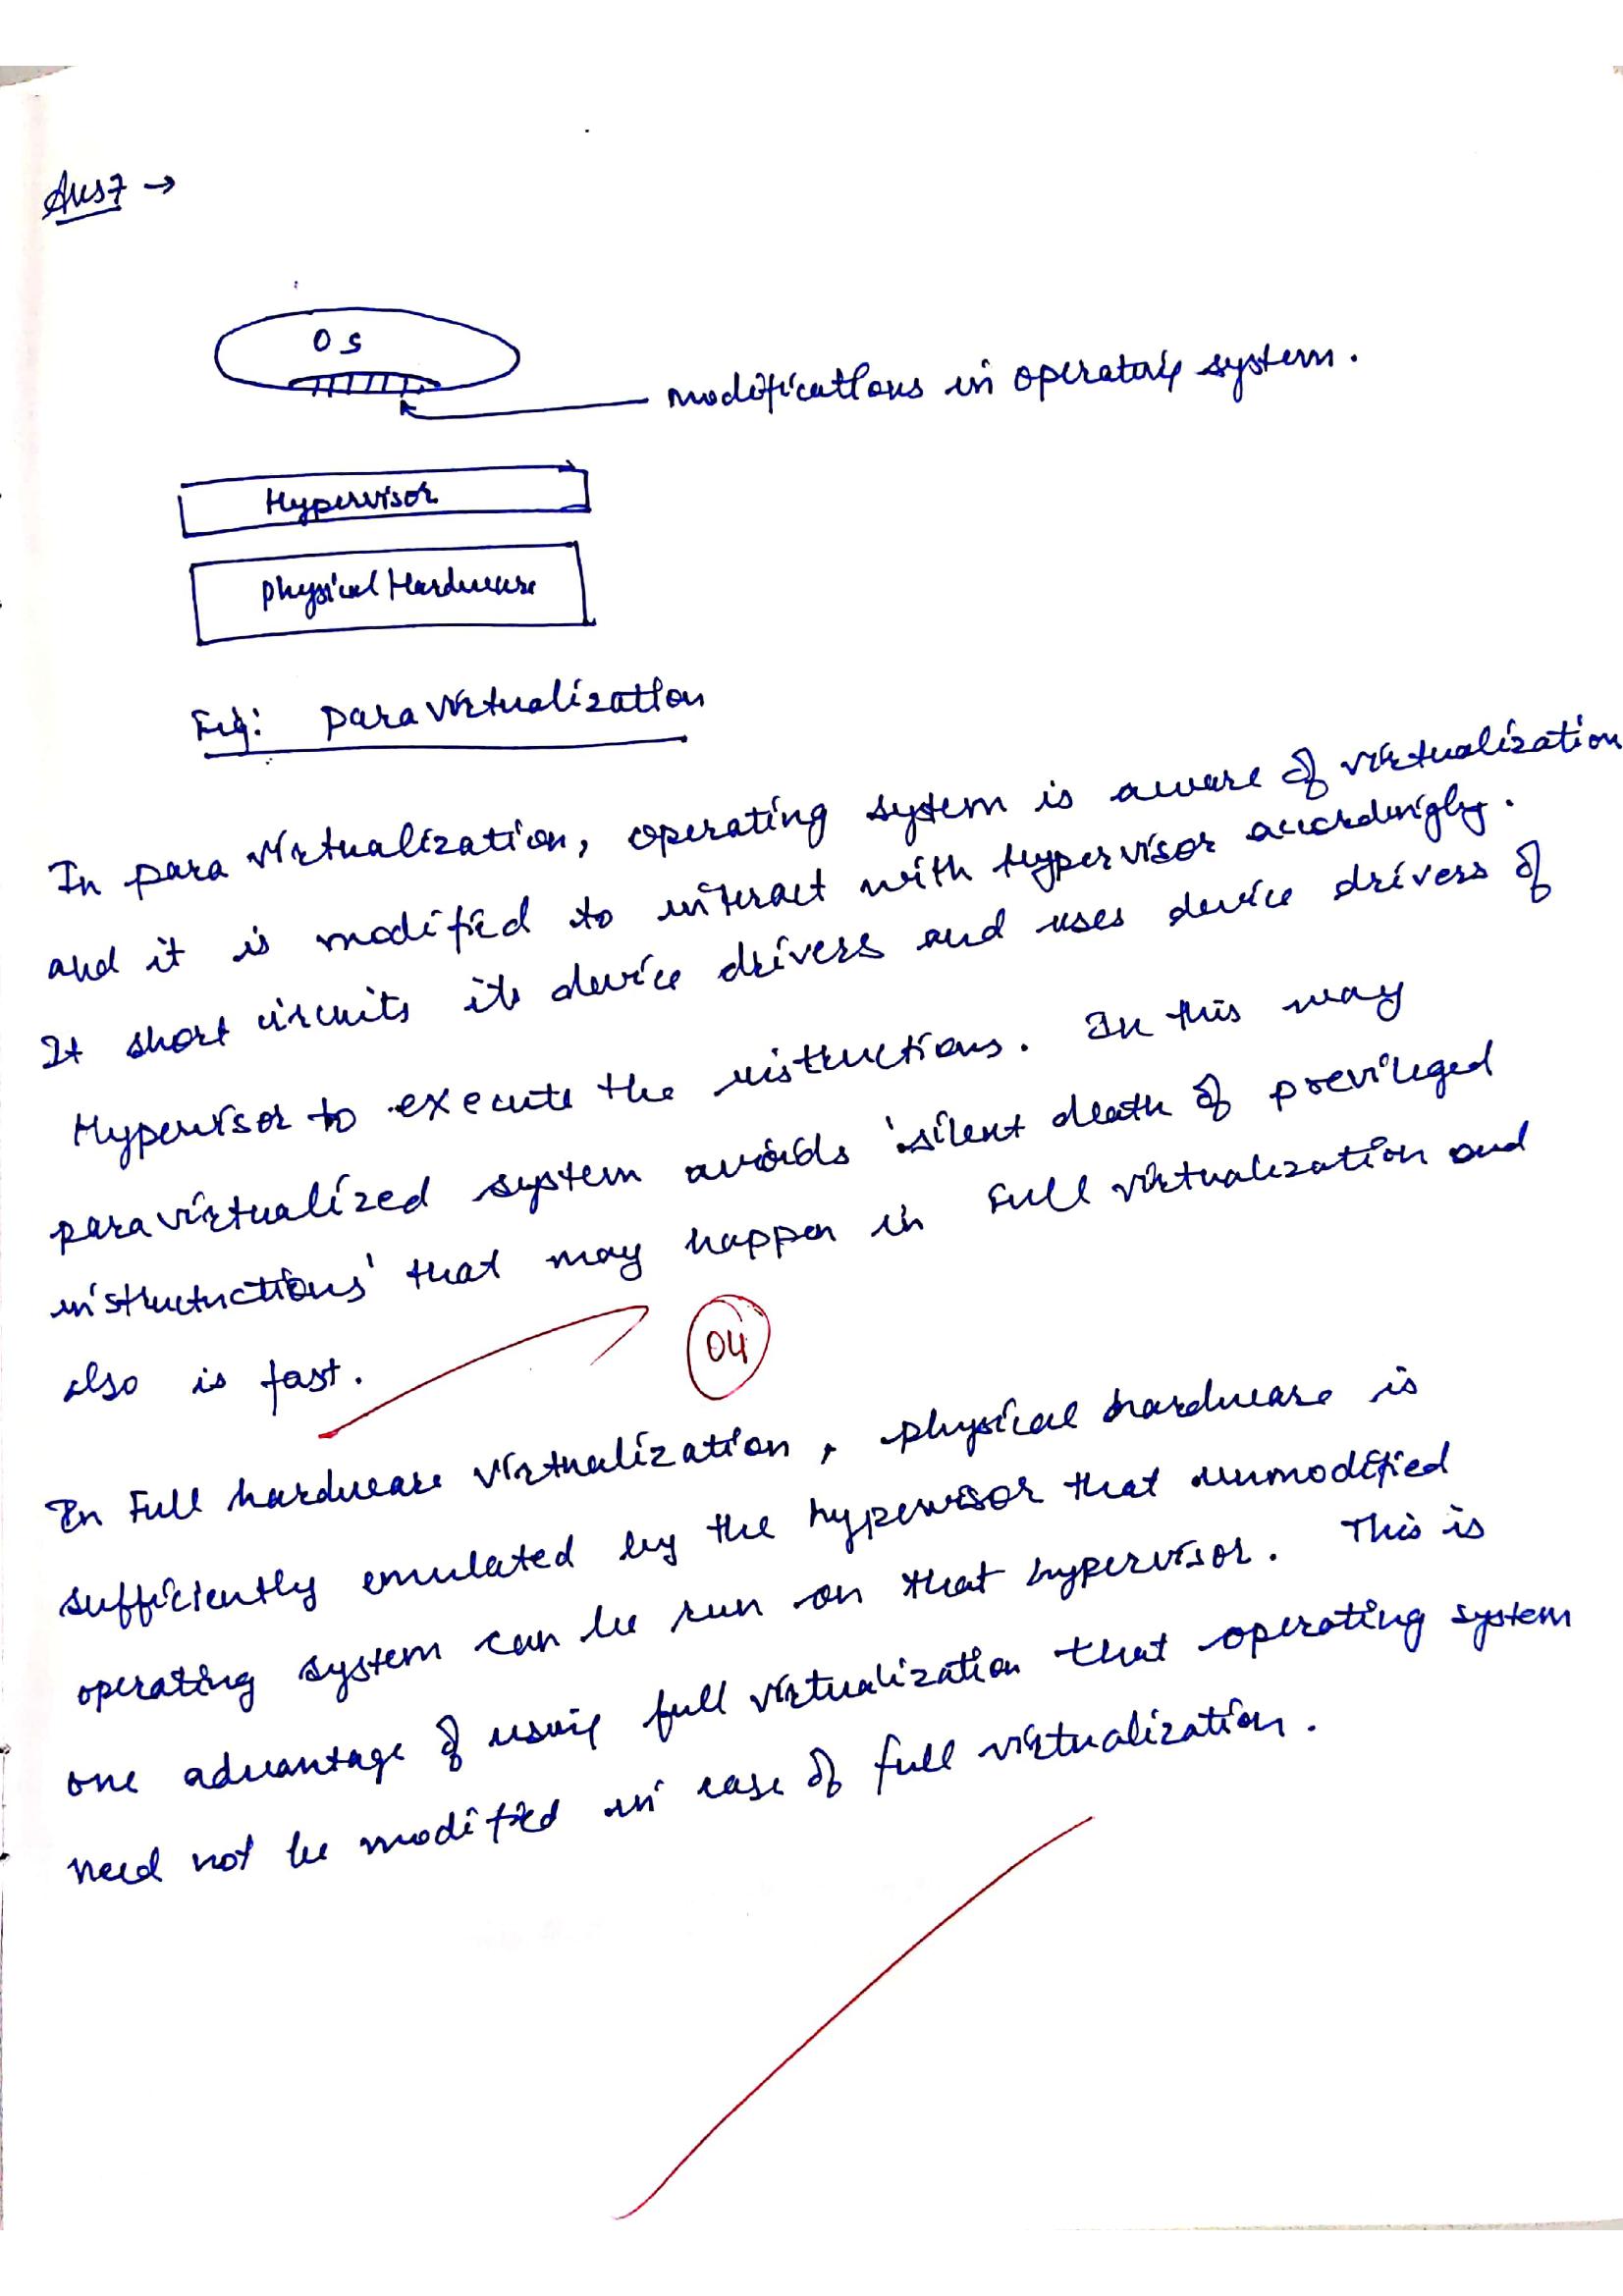 Ans7 →
OS
modifications in operating system.
Hypervisor
Physical Hardware
Fig: Para virtualization
In para virtualization, operating system is aware of virtualization
and it is modified to interact with Hypervisor accordingly.
It short circuits its device drivers and uses device drivers of
Hypervisor to execute the instructions. In this way
para virtualized system avoids 'silent death of previleged
instructuctions' that may happen in Full virtualization and
also is fast.
04
In Full hardware virtualization, physical hardware is
sufficiently emulated by the hypervisor that unmodified
operating system can be run on that hypervisor. This is
one advantage of using full virtualization that operating system
need not be modified in case of full virtualization.